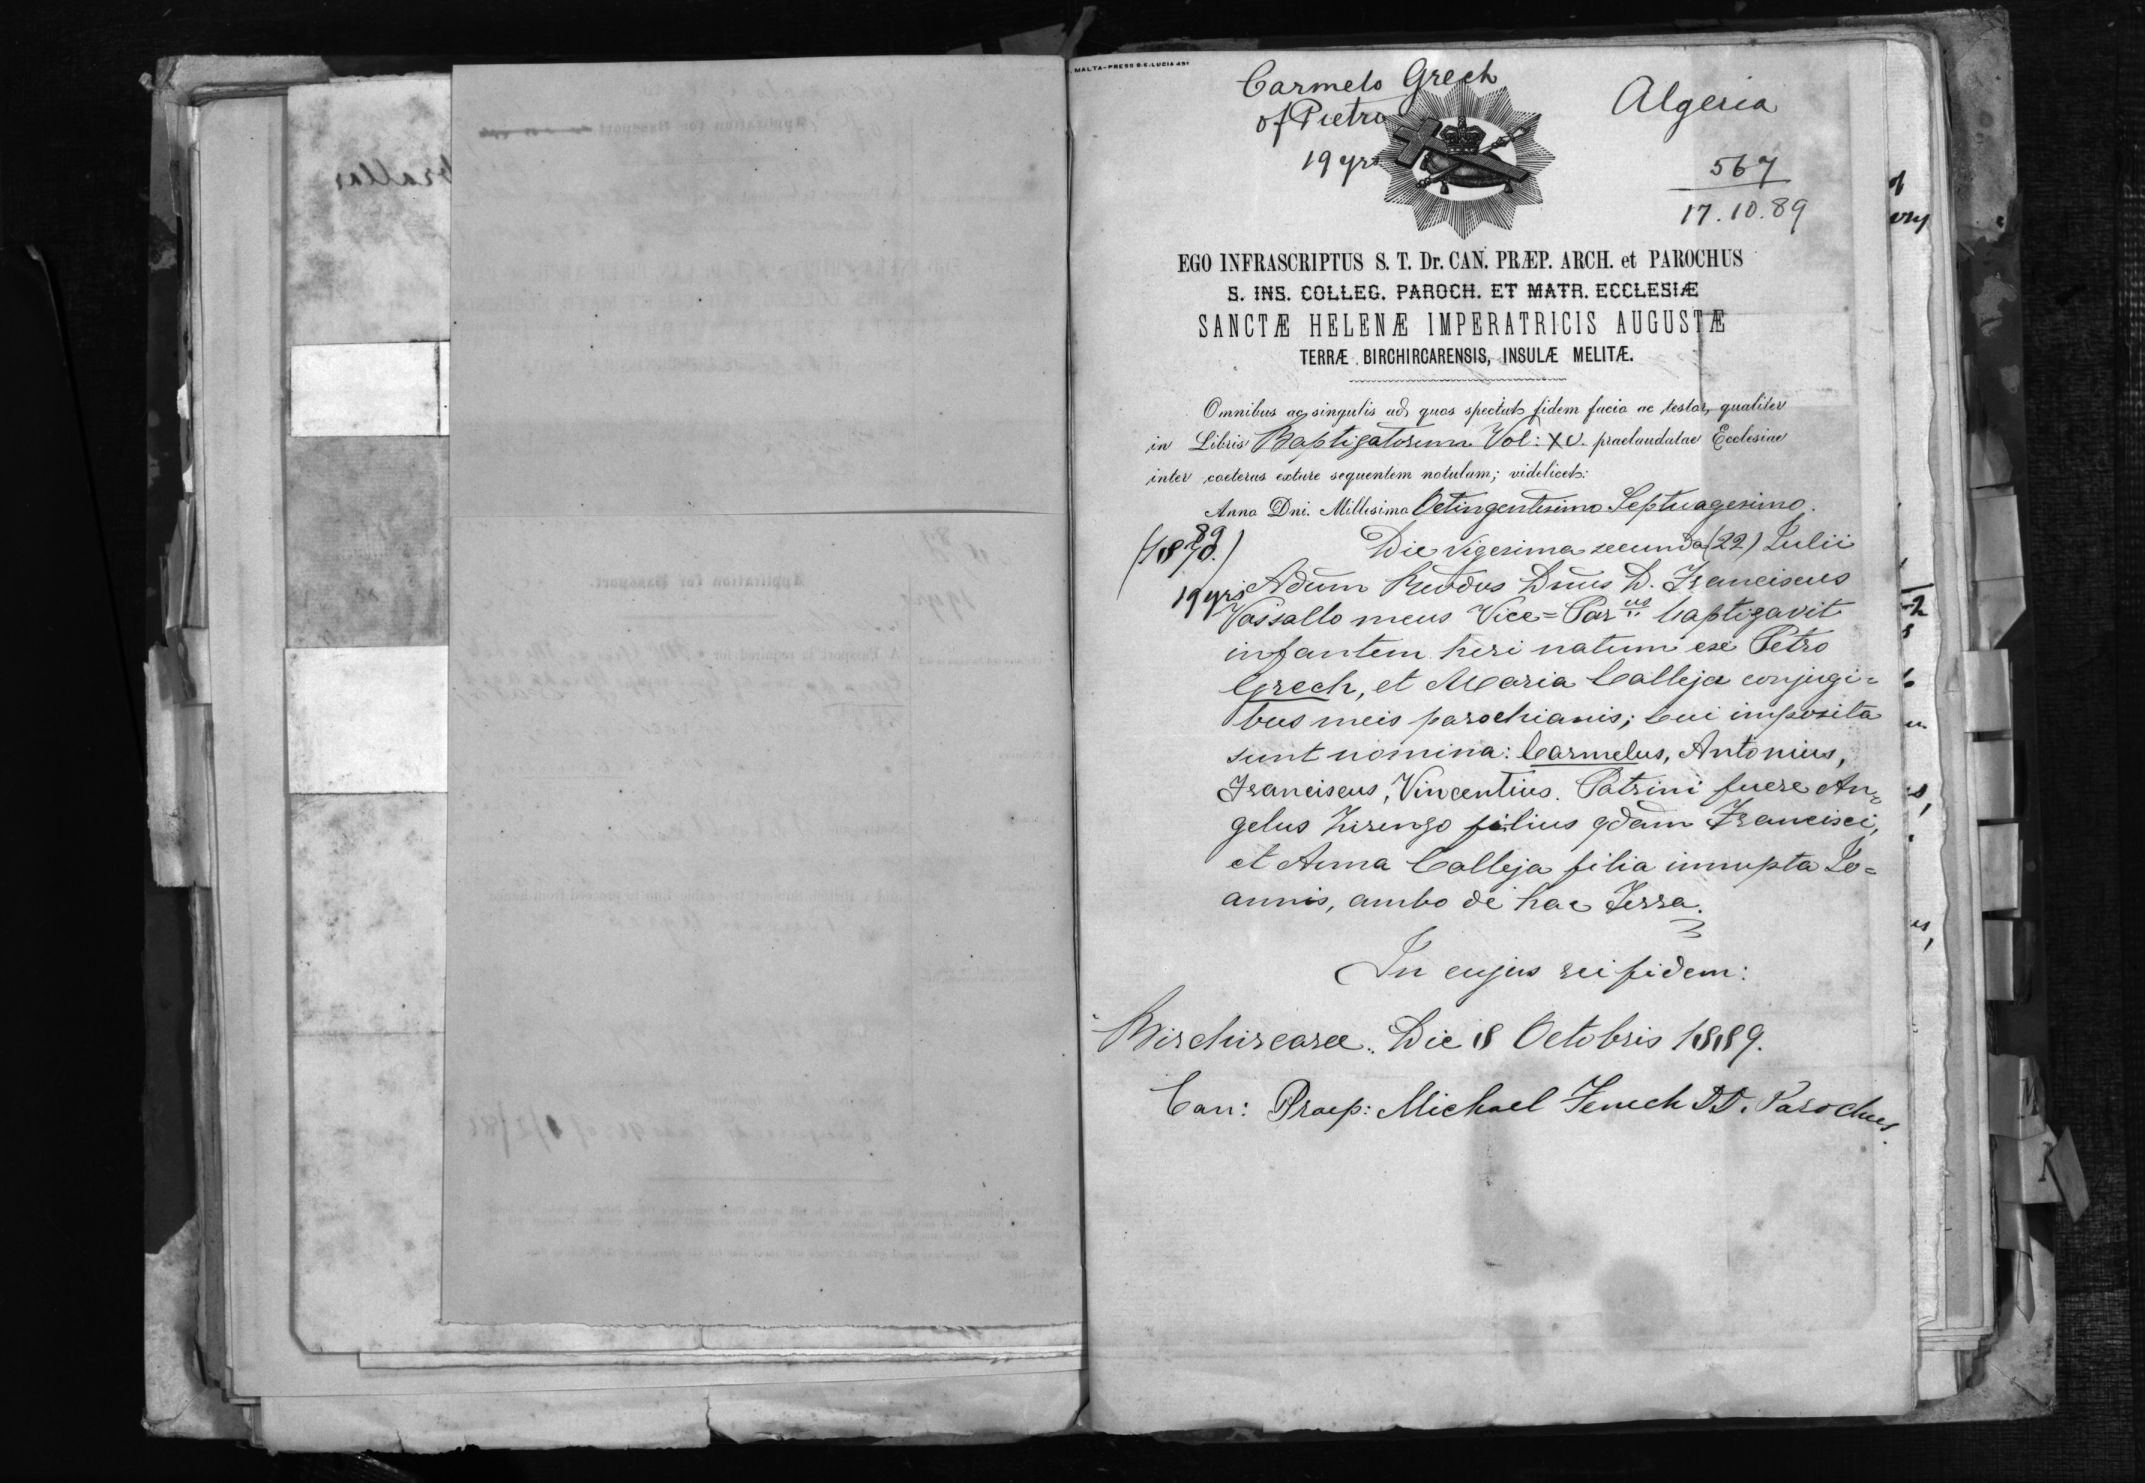 MALTA-PRESS S.S. LUCIA 491
Carmelo Grech
of Pietro
19 yrs
Algeria
567
17.10.89
EGO INFRASCRIPTUS S. T. Dr. CAN. PRÆP. ARCH. et PAROCHUS
S. INS. COLLEG. PAROCH. ET MATR. ECCLESIÆ
SANCTÆ HELENÆ IMPERATRICIS AUGUSTÆ
TERRÆ BIRCHIRCARENSIS, INSULÆ MELITÆ.
Omnibus ac singulis ad quos spectat fidem facio ac testor, qualiter
in Libris Baptizatorum Vol: XV. praelaudatae Ecclesiae
inter coeteras extare sequentem notulam; videlicet:
Anno Dni. Millesimo Octingentesimo Septuagesimo.
89
(1870.) Die vigesima secunda (22) Julii
19 yrs Adum Rvdus Dnus D. Franciscus
Vassallo meus Vice=Parus baptizavit
infantem heri natum ex Petro
Grech, et Maria Calleja conjugi=
bus meis parochianis; cui imposita
sunt nomina: Carmelus, Antonius,
Franciscus, Vincentius. Patrini fuere An=
gelus filius qdam Francisci,
et Anna Calleja filia innupta Jo=
annis, ambo de hac Terra.
In cujus rei fidem:
Birchircaræ. Die 18 Octobris 1889.
Can: Praep: Michael Fenech D.D. Parochus.